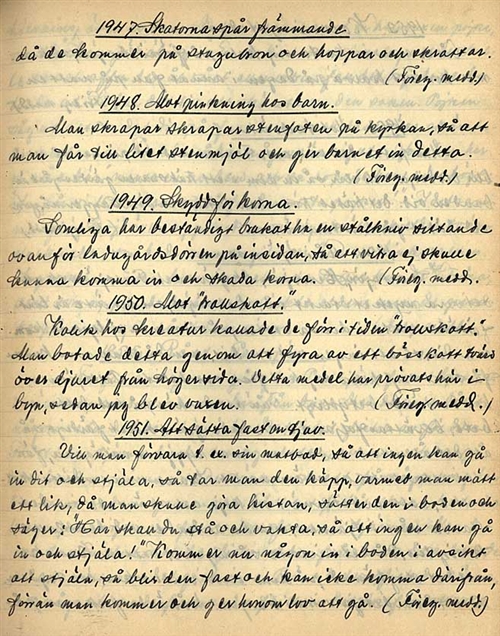 1947. Skatorna spår främmande
då de kommer på stugubron och hoppar och skrattar.
(Föreg. medd.)
1948. Mot pinkning hos barn.
Man skrapar skrapar stenfoten på kyrkan, så att
man får till litet stenmjöl och ger barnet in detta.
(Föreg. medd.)
1949. Skydd för korna.
Somliga har beständigt brukat ha en stålkniv sittande
ovanför ladugårdsdören på insidan, så att vitra ej skulle
kunna komma in och skada korna. (Föreg. medd.
1950. Mot "trollskott."
Kolik hos kreatur kallade de förr i tiden "trollskott."
Man botade detta genom att fyra av ett bösskott tvärs
över djuret från höger sida. Detta medel har prövats här i
byn, sedan jag blev vuxen. (Föreg. medd.)
1951. Att sätta fast en tjuv.
Vill man förvara t. ex. sin matbod, så att ingen kan gå
in dit och stjäla, så tar man den käpp, varmed man mått
ett lik, då man skulle göra kistan, sätter den i boden och
säger: "Här skall du stå och vakta, så att ingen kan gå
in och stjäla!" Kommer nu någon in i boden i avsikt
att stjäla, så blir den fast och kan icke komma därifrån,
förrän man kommer och ger honom lov att gå. (Föreg. medd.)